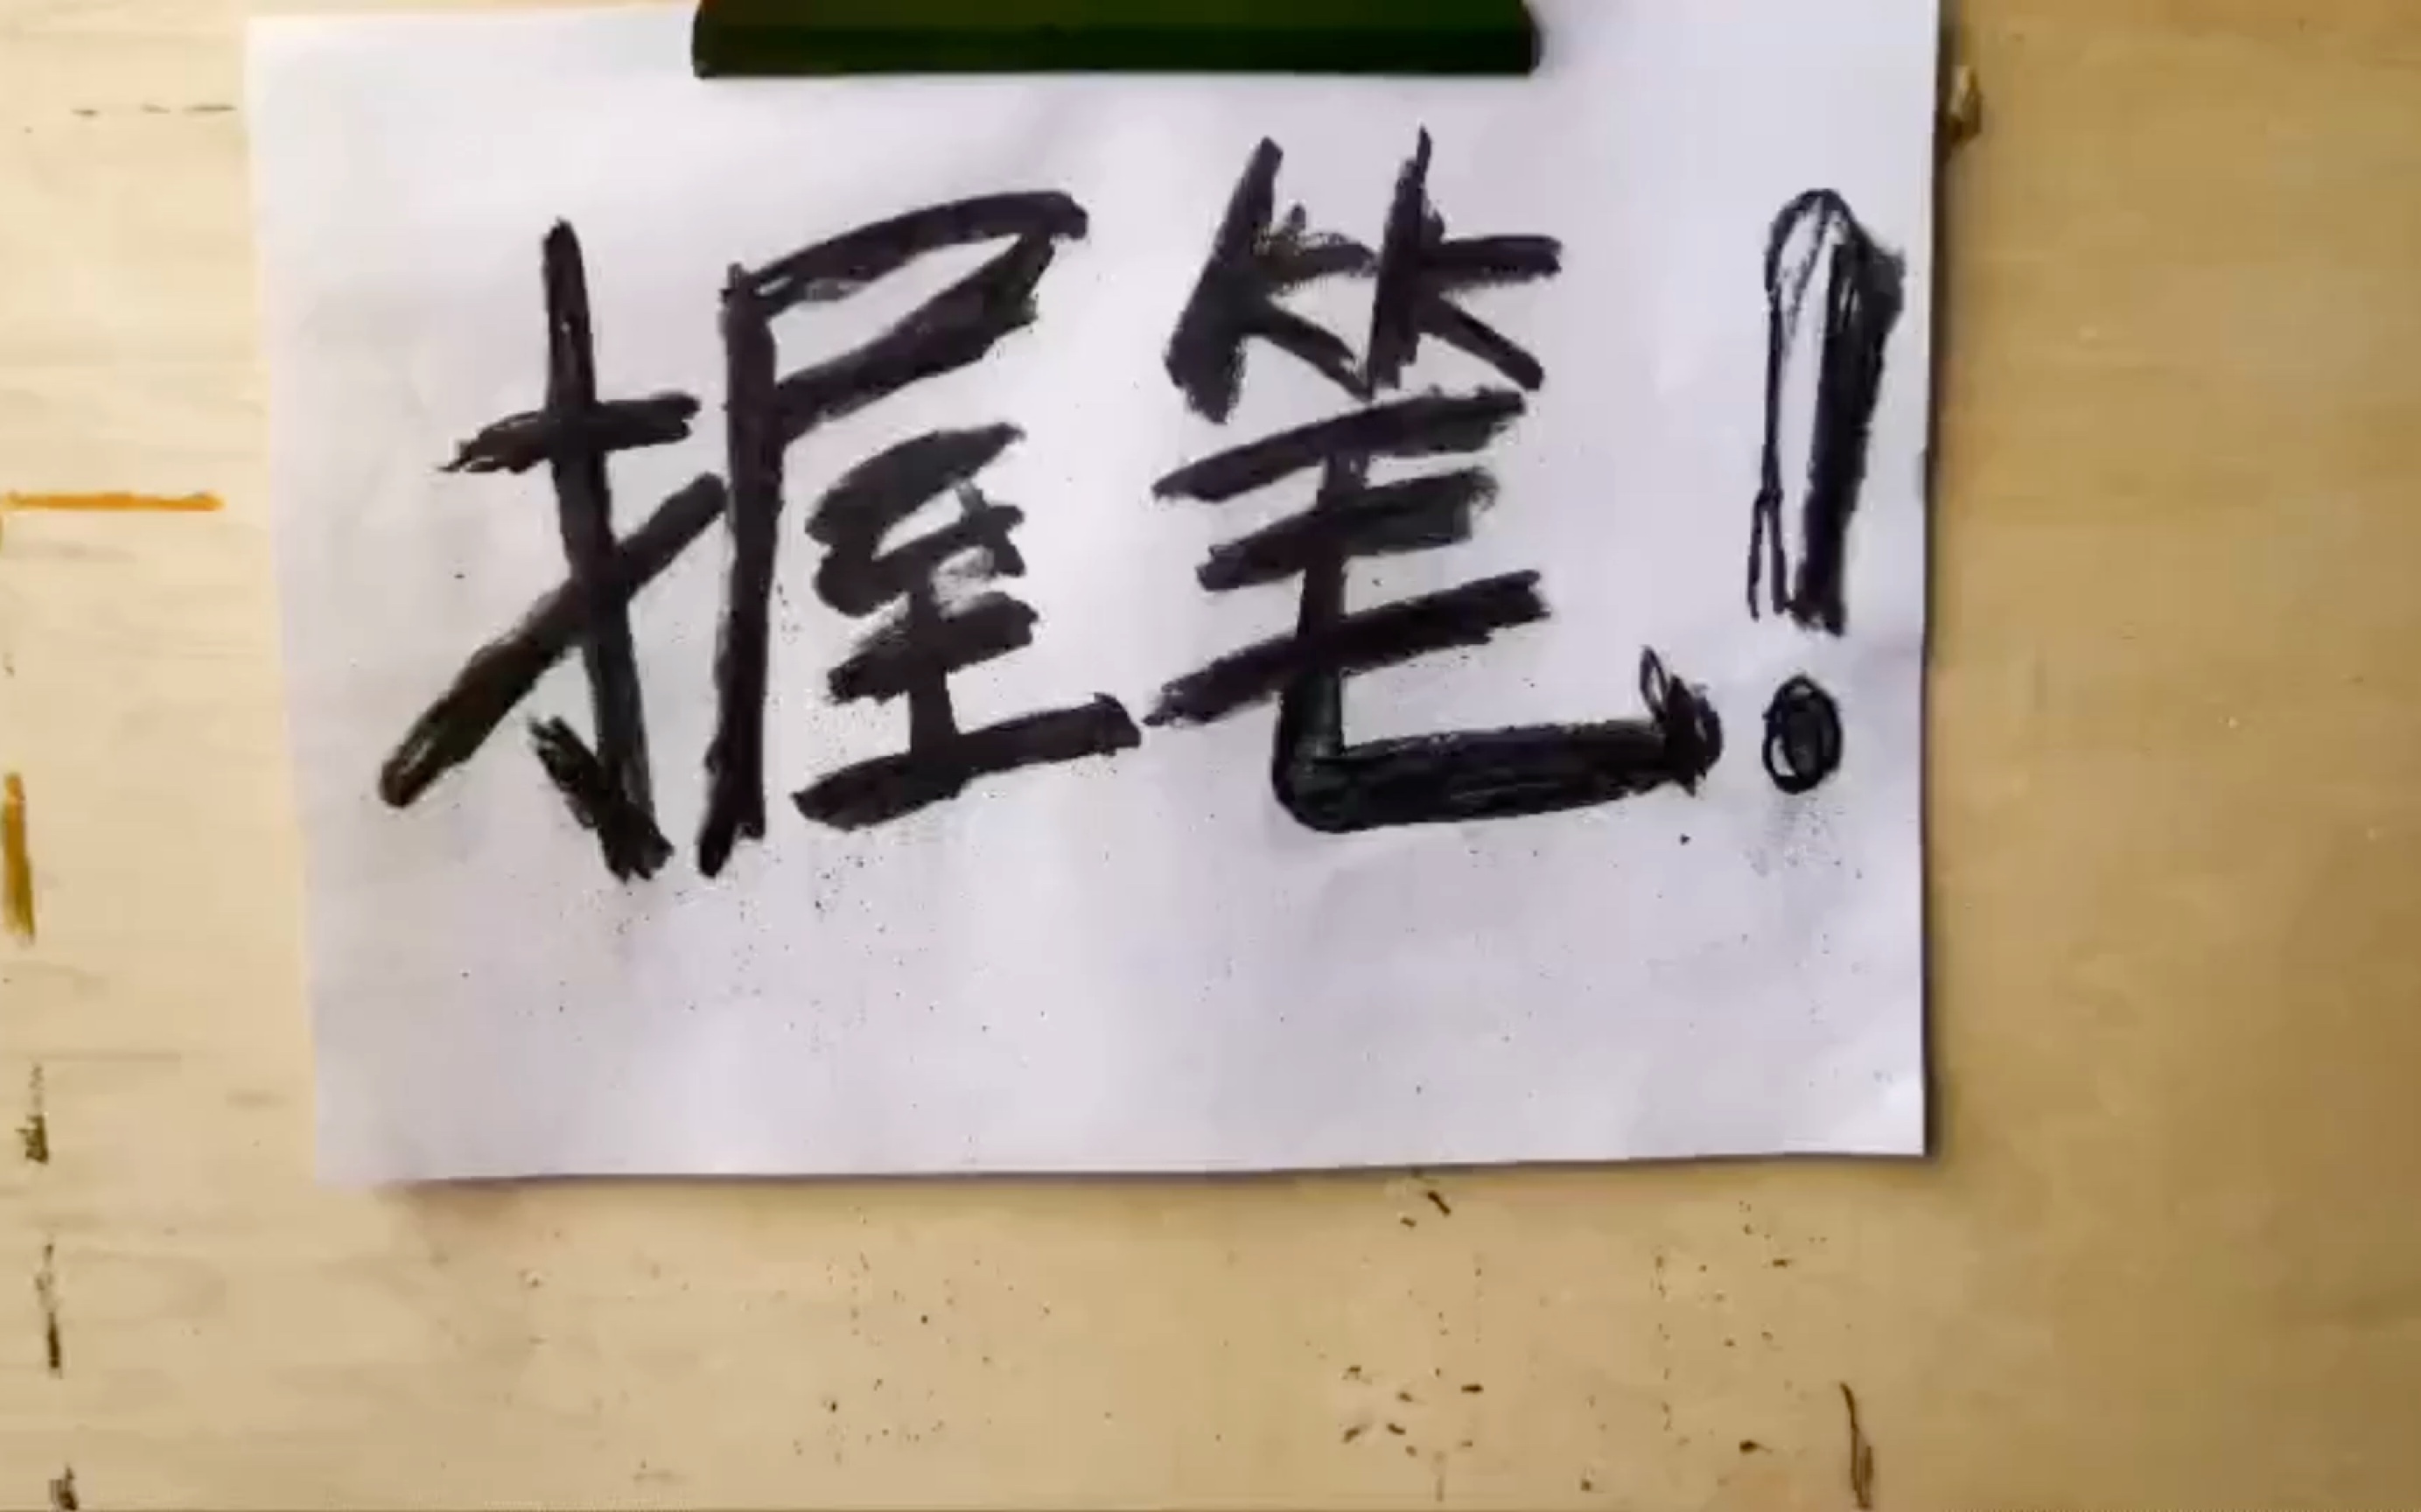 握笔！